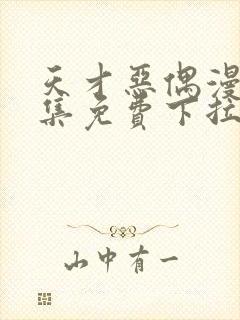 天才惡偶漫
集免費下拉
山中有一